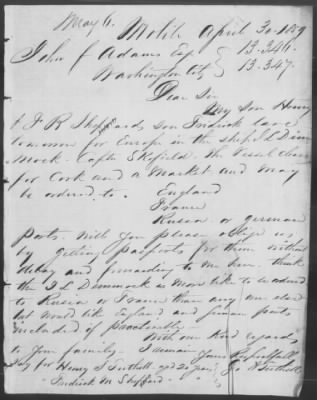 May 6.
Mobile April 30 1859
John F Adams Esq 13.346.
Washington City 13.347.
Dear Sir
My Son Henry
& F R Sheppards son Fredrick leave
tomorrow for Europe in the ship J L Dim
mock. Capt Skofield. The vessel clears
for Cork and a Market and may
be ordered to. England
France
Rusia or german
Ports. Will you please oblige us
by getting pasports for them without
delay and forwarding to me here. I think
the J L Dimmock is more like to be ordered
to Rusia or France than any one else
but would like England and german ports
included if practicable.
With our kind regards
to your family. I remain
Yours Respectfully
for Henry J Tuthill aged 20 years
Fredrick M Sheppard